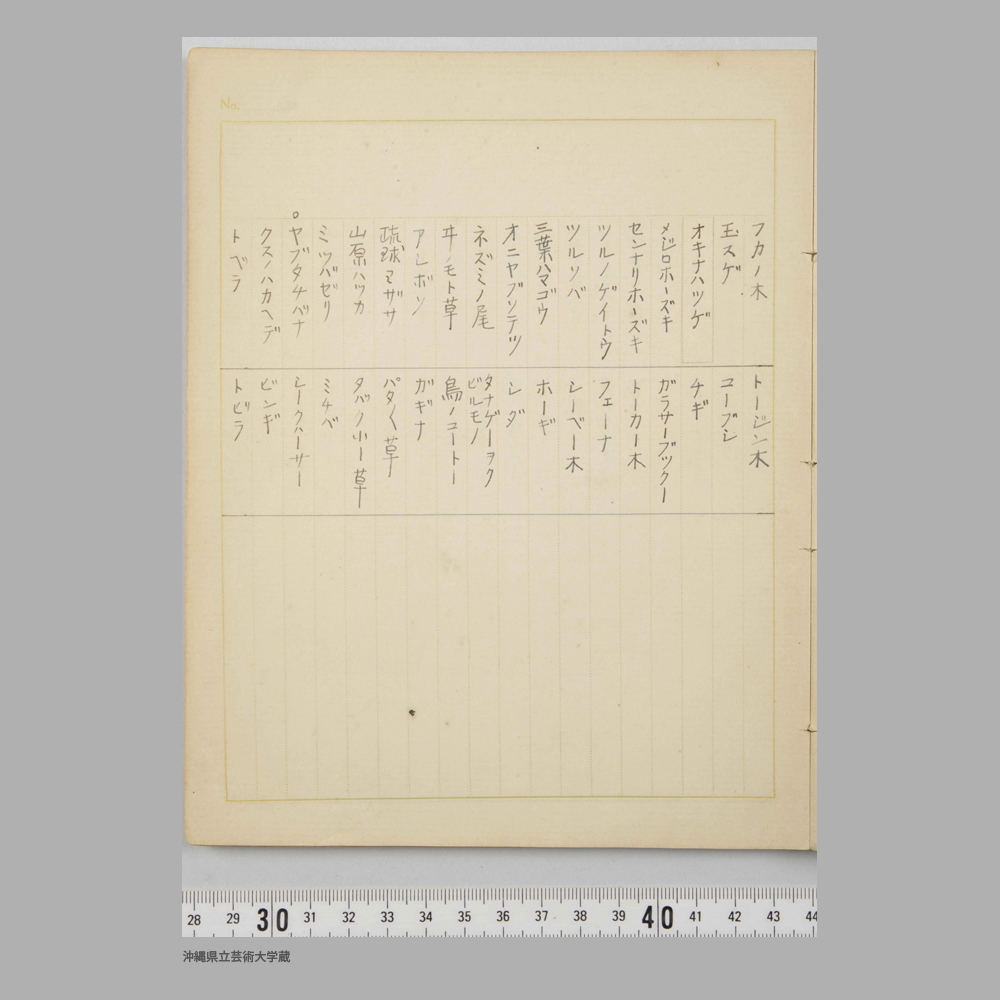 No.
フカノ木
玉スゲ
オキナハツゲ
メジロホーズキ
センナリホーズキ
ツルノゲイトウ
ツルソバ
三葉ハマゴウ
オニヤブソテツ
ネズミノ尾
ヰノモト草
アレボン
琉球マザサ
山原ハツカ
ミツバゼリ
ヤブタチバナ
クスノハカヘデ
トベラ
トージン木
コーブシ
チギ
ガラサーブックー
トーカー木
フェーナ
シーベー木
ホーギ
シダ
タナゲーヲク
ビルモノ
鳥ノユートー
ガギナ
パタ〱草
タバツク小ー草
ミチベ
シークハーサー
ビンギ
トビラ
28 29 30 31 32 33 34 35 36 37 38 39 40 41 42 43 44
沖縄県立芸術大学蔵